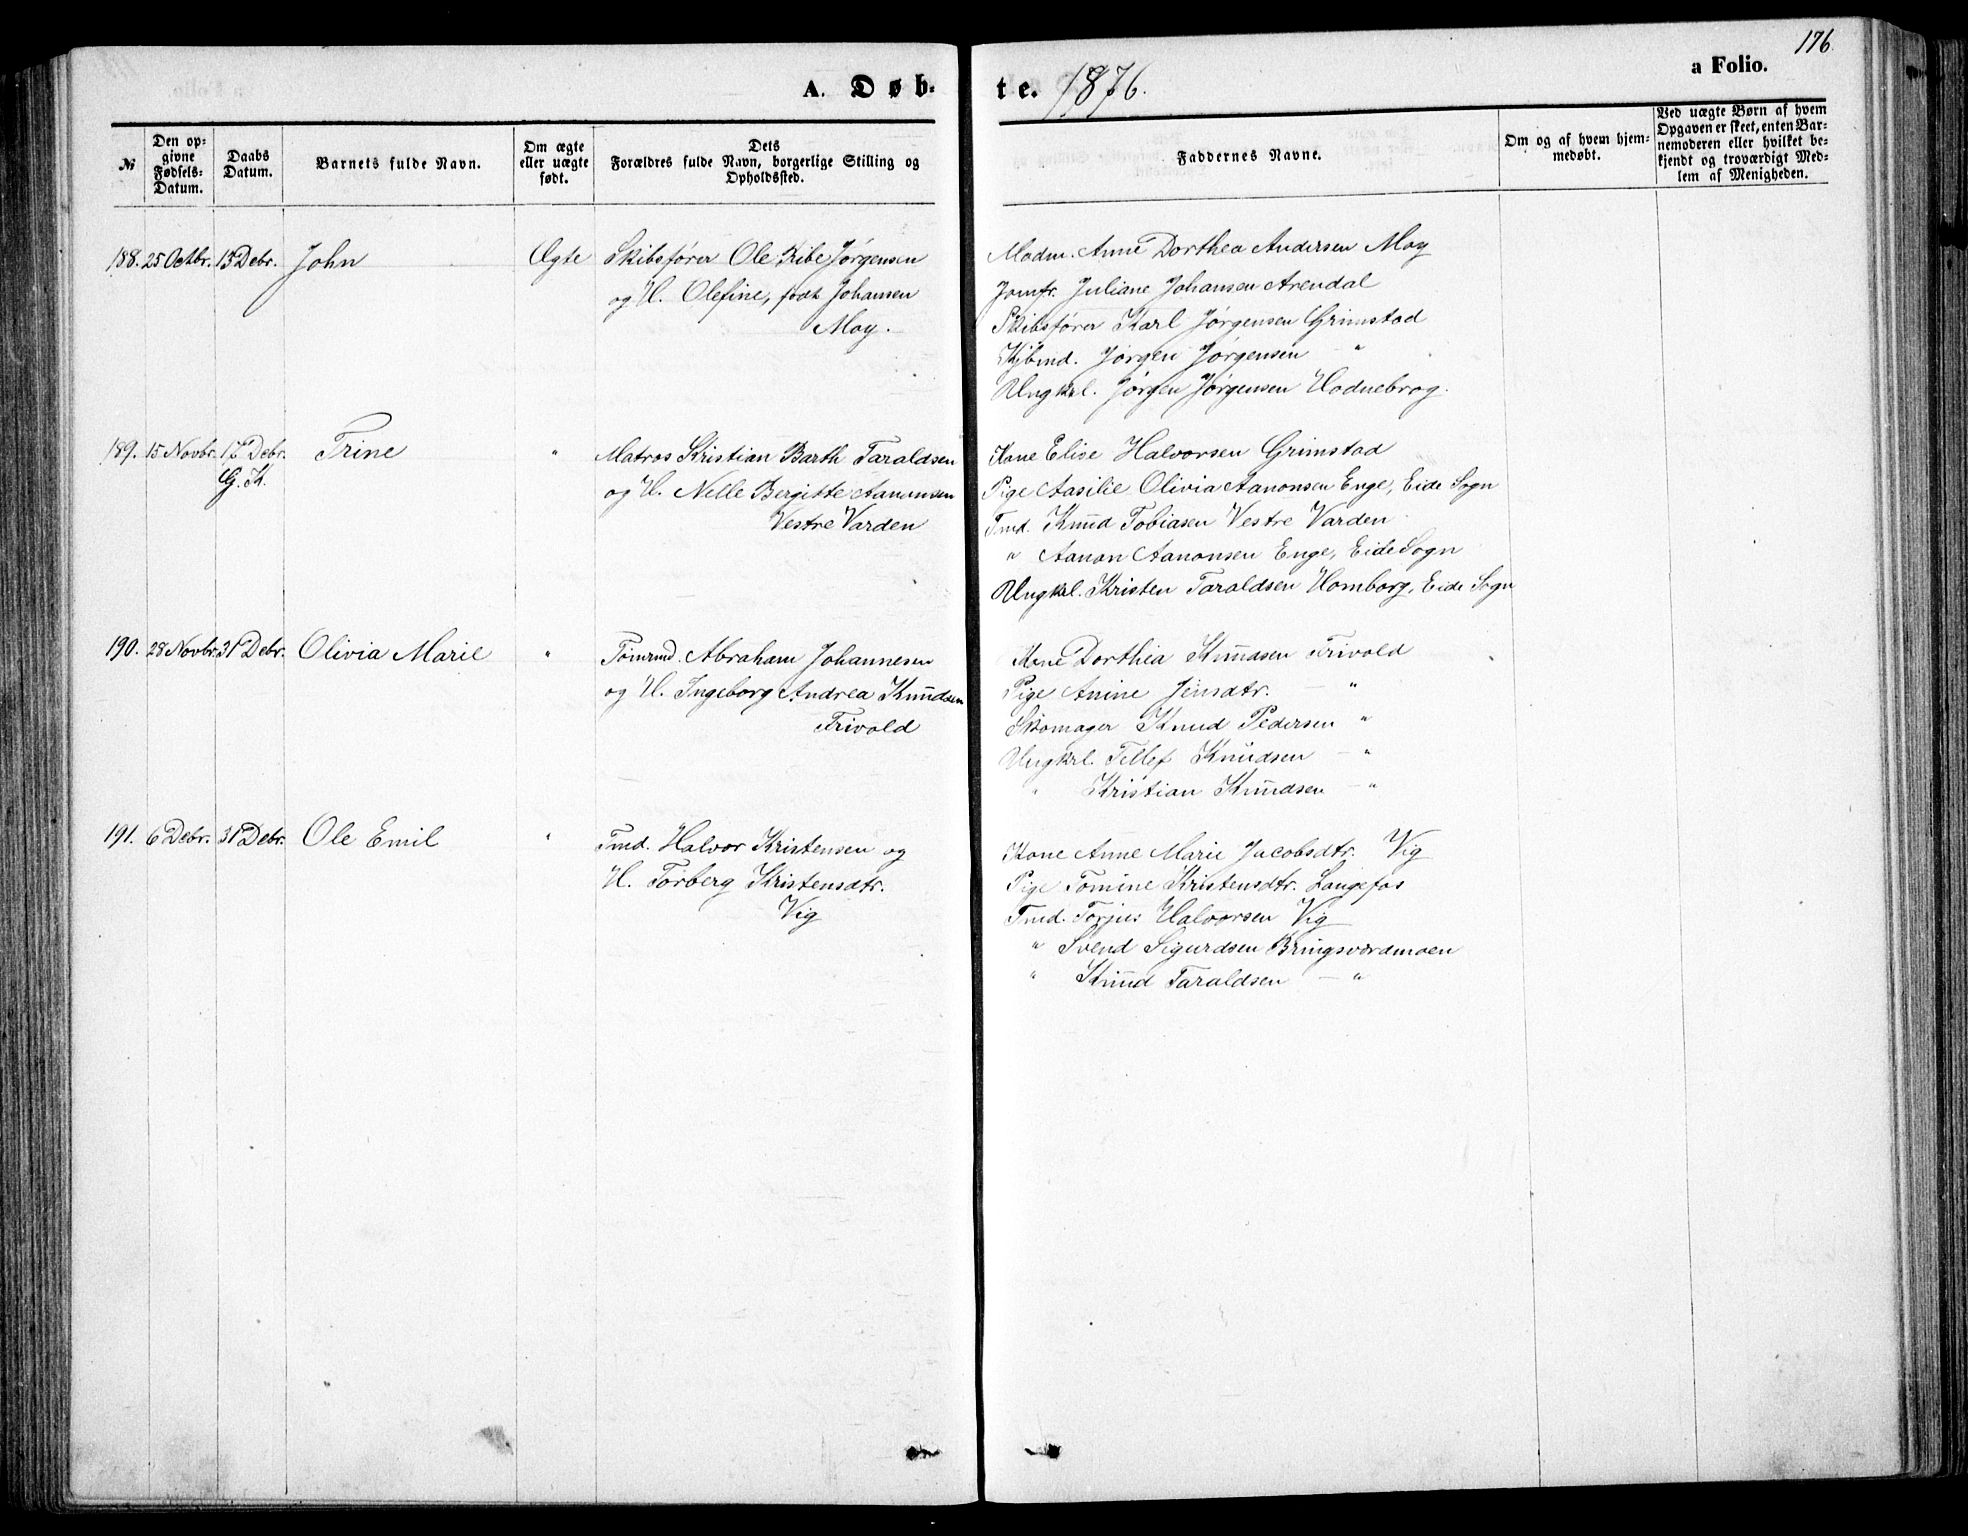 176.
A. Døb-
te. 1876.
a Folio.
№
Den op-
givne
Fødsels-
Datum.
Daabs
Datum.
Barnets fulde Navn.
Om ægte
eller uægte
født.
Dets
Forældres fulde Navn, borgerlige Stilling og
Opholdssted.
Faddernes Navne.
Om og af hvem hjem-
medøbt.
Ved uægte Børn af hvem
Opgaven er skeet, enten Bar-
nemoderen eller hvilket be-
kjendt og troværdigt Med-
lem af Menigheden.
188. 25 Octbr. Debr. John Ægte Skibsfører Ole Ribe Jørgensen
og H. Olefine, født Johansen
Moy.
Madm. Anne Dorthea Andersen Moy
Jomfr. Juliane Johansen Arendal
Skibsfører Karl Jørgensen Grimstad
Kjbmd. Jørgen Jørgensen — "
Ungkrl. Jørgen Jørgensen Hodnebrog.
189. 15 Novbr. 17 Debr. Trine " Matros Kristian Barth Taraldsen
G. K.
og H. Nelle Bergitte Aanonsen
Vestre Varden
Kone Elise Halvorsen Grimstad
Pige Aasilie Olivia Aanonsen Enge, Eide Sogn
Tmd. Knud Tobiasen Vestre Varden
" Aanon Aanonsen Enge, Eide Sogn
Ungkrl. Kristen Taraldsen Homborg, Eide Sogn
190. 28 Novbr. 31 Debr. Olivia Marie " Tømrmd. Abraham Johannesen
og H. Ingeborg Andrea Knudsen
Trivold
Kone Dorthea Knudsen Trivold
Pige Anine Jensdtr. — "
Skomager Knud Pedersen "
Ungkrl. Tellef Knudsen — "
" Kristian Knudsen — "
191. 6 Debr. 31 Debr. Ole Emil " Tmd. Halvor Kristensen og
H. Torberg Kristensdtr.
Vig
Kone Anne Marie Jacobsdtr. Vig
Pige Tomine Kristensdtr. Langefos
Tmd. Torjus Halvorsen Vig
" Svend Sigurdsen Bringsværdmoen
" Knud Taraldsen — "